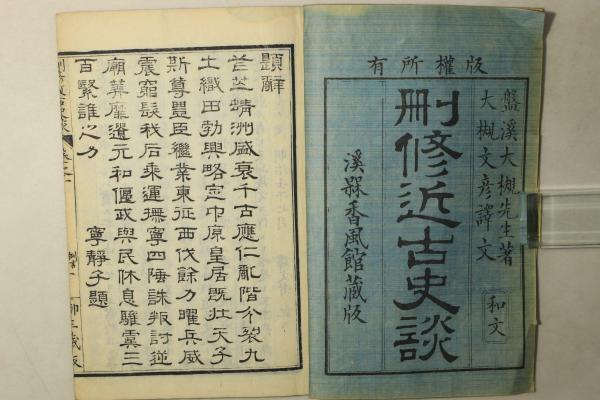 版權所有
盤溪大槻先生著
大槻文彦譯文
和文
刪修近古史談
溪槑香風館藏版
題辭
芒芒蜻洲盛衰千古應仁亂階分裂九
土織田勃興略定中原皇居既壯天子
斯尊豐臣繼業東征西伐餘力曜兵威
震窮髮我后乘運撫寧四陲誅叛討逆
廟算靡遺元和偃武與民休息騅虞三
百繄誰之力
寧靜子題